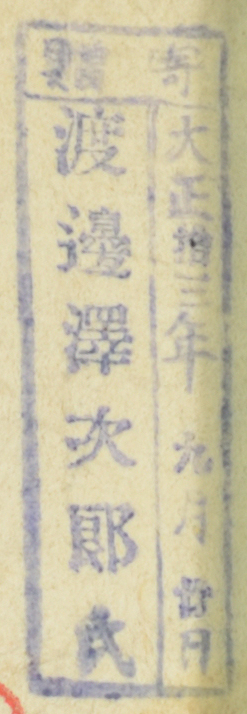 寄贈
大正拾三年九月廿日
渡邊澤次郎氏